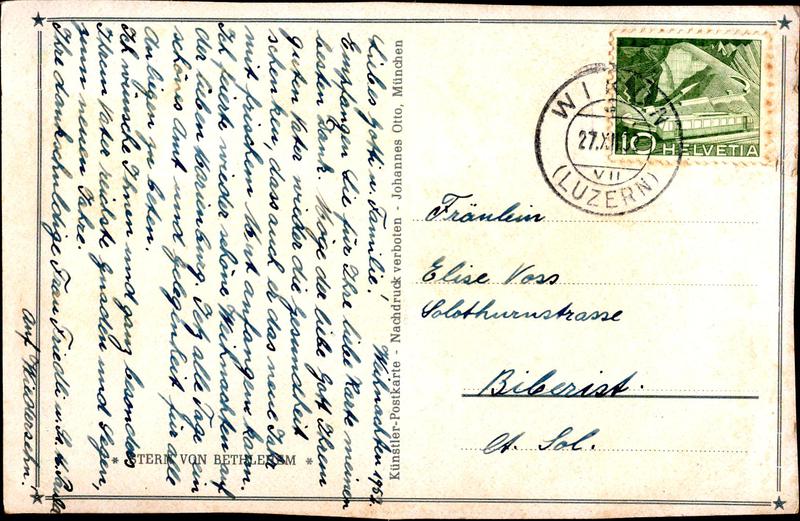 Weihnachten 1952.
Liebes Gotti u. Familie!
Empfangen Sie für Ihre liebe Karte meinen
besten Dank. Möge der liebe Gott Ihrem
guten Vater wieder die Gesundheit
schenken, dass auch er das neue Jahr
mit frischem Mut anfangen kann.
Ich feierte wieder schöne Weihnachten auf
der lieben Marienburg. Jetz alle Tage ein
schönes Amt und Gelegenheit für alle
Anliegen zu beten.
Ich wünsche Ihnen und ganz besonders
Ihrem Vater reichste Gnaden und Segen,
zum neuen Jahre.
Ihre dankschuldige Frau Friedli u.
Auf Wiedersehn.
* STERN VON BETHLEHEM *
Künstler-Postkarte - Nachdruck verboten - Johannes Otto, München
WIKON
27.XII.
VII
(LUZERN)
10 HELVETIA
Fräulein
Elise Voss
Solothurnstrasse
Biberist.
Ct. Sol.